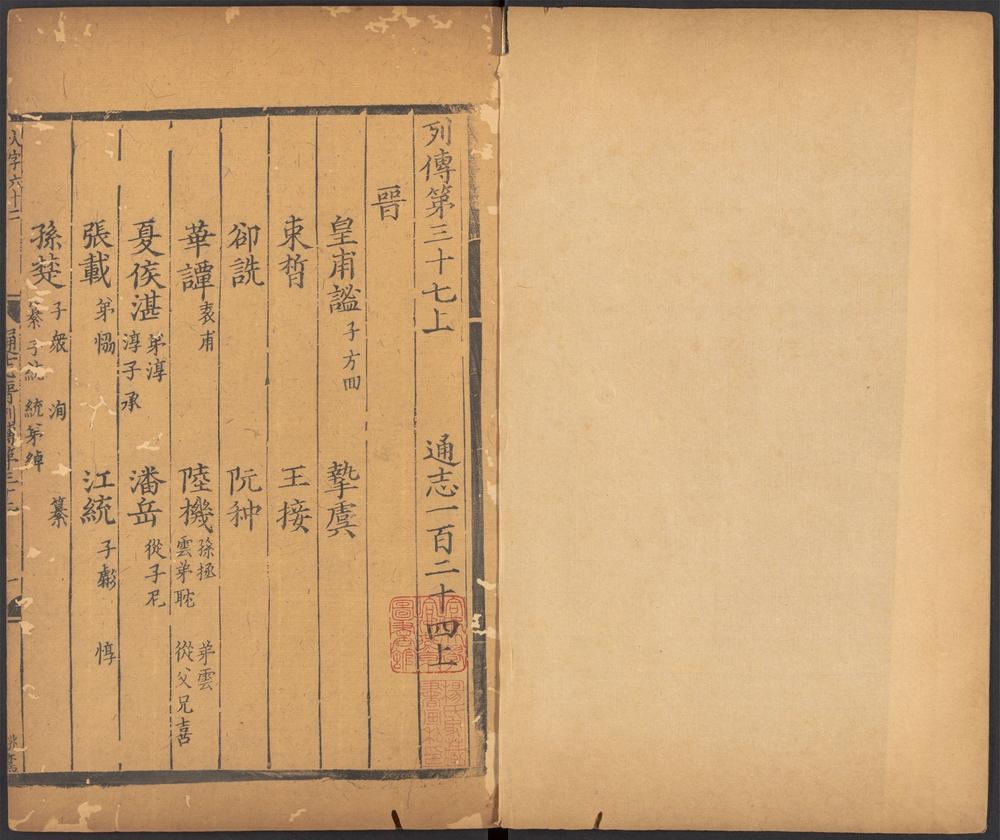 列傳第三十七上 通志一百二十四上
晉
皇甫謐 子方回 摯虞
束晳 王接
卻詵 阮种
華譚 袁甫 陸機 孫拯 弟雲
雲弟耽 從父兄喜
夏侯湛 弟淳
淳子承 潘岳 從子尼
張載 弟協 江統 子虨 惇
孫楚 子衆 洵 纂
纂子統 統弟綽